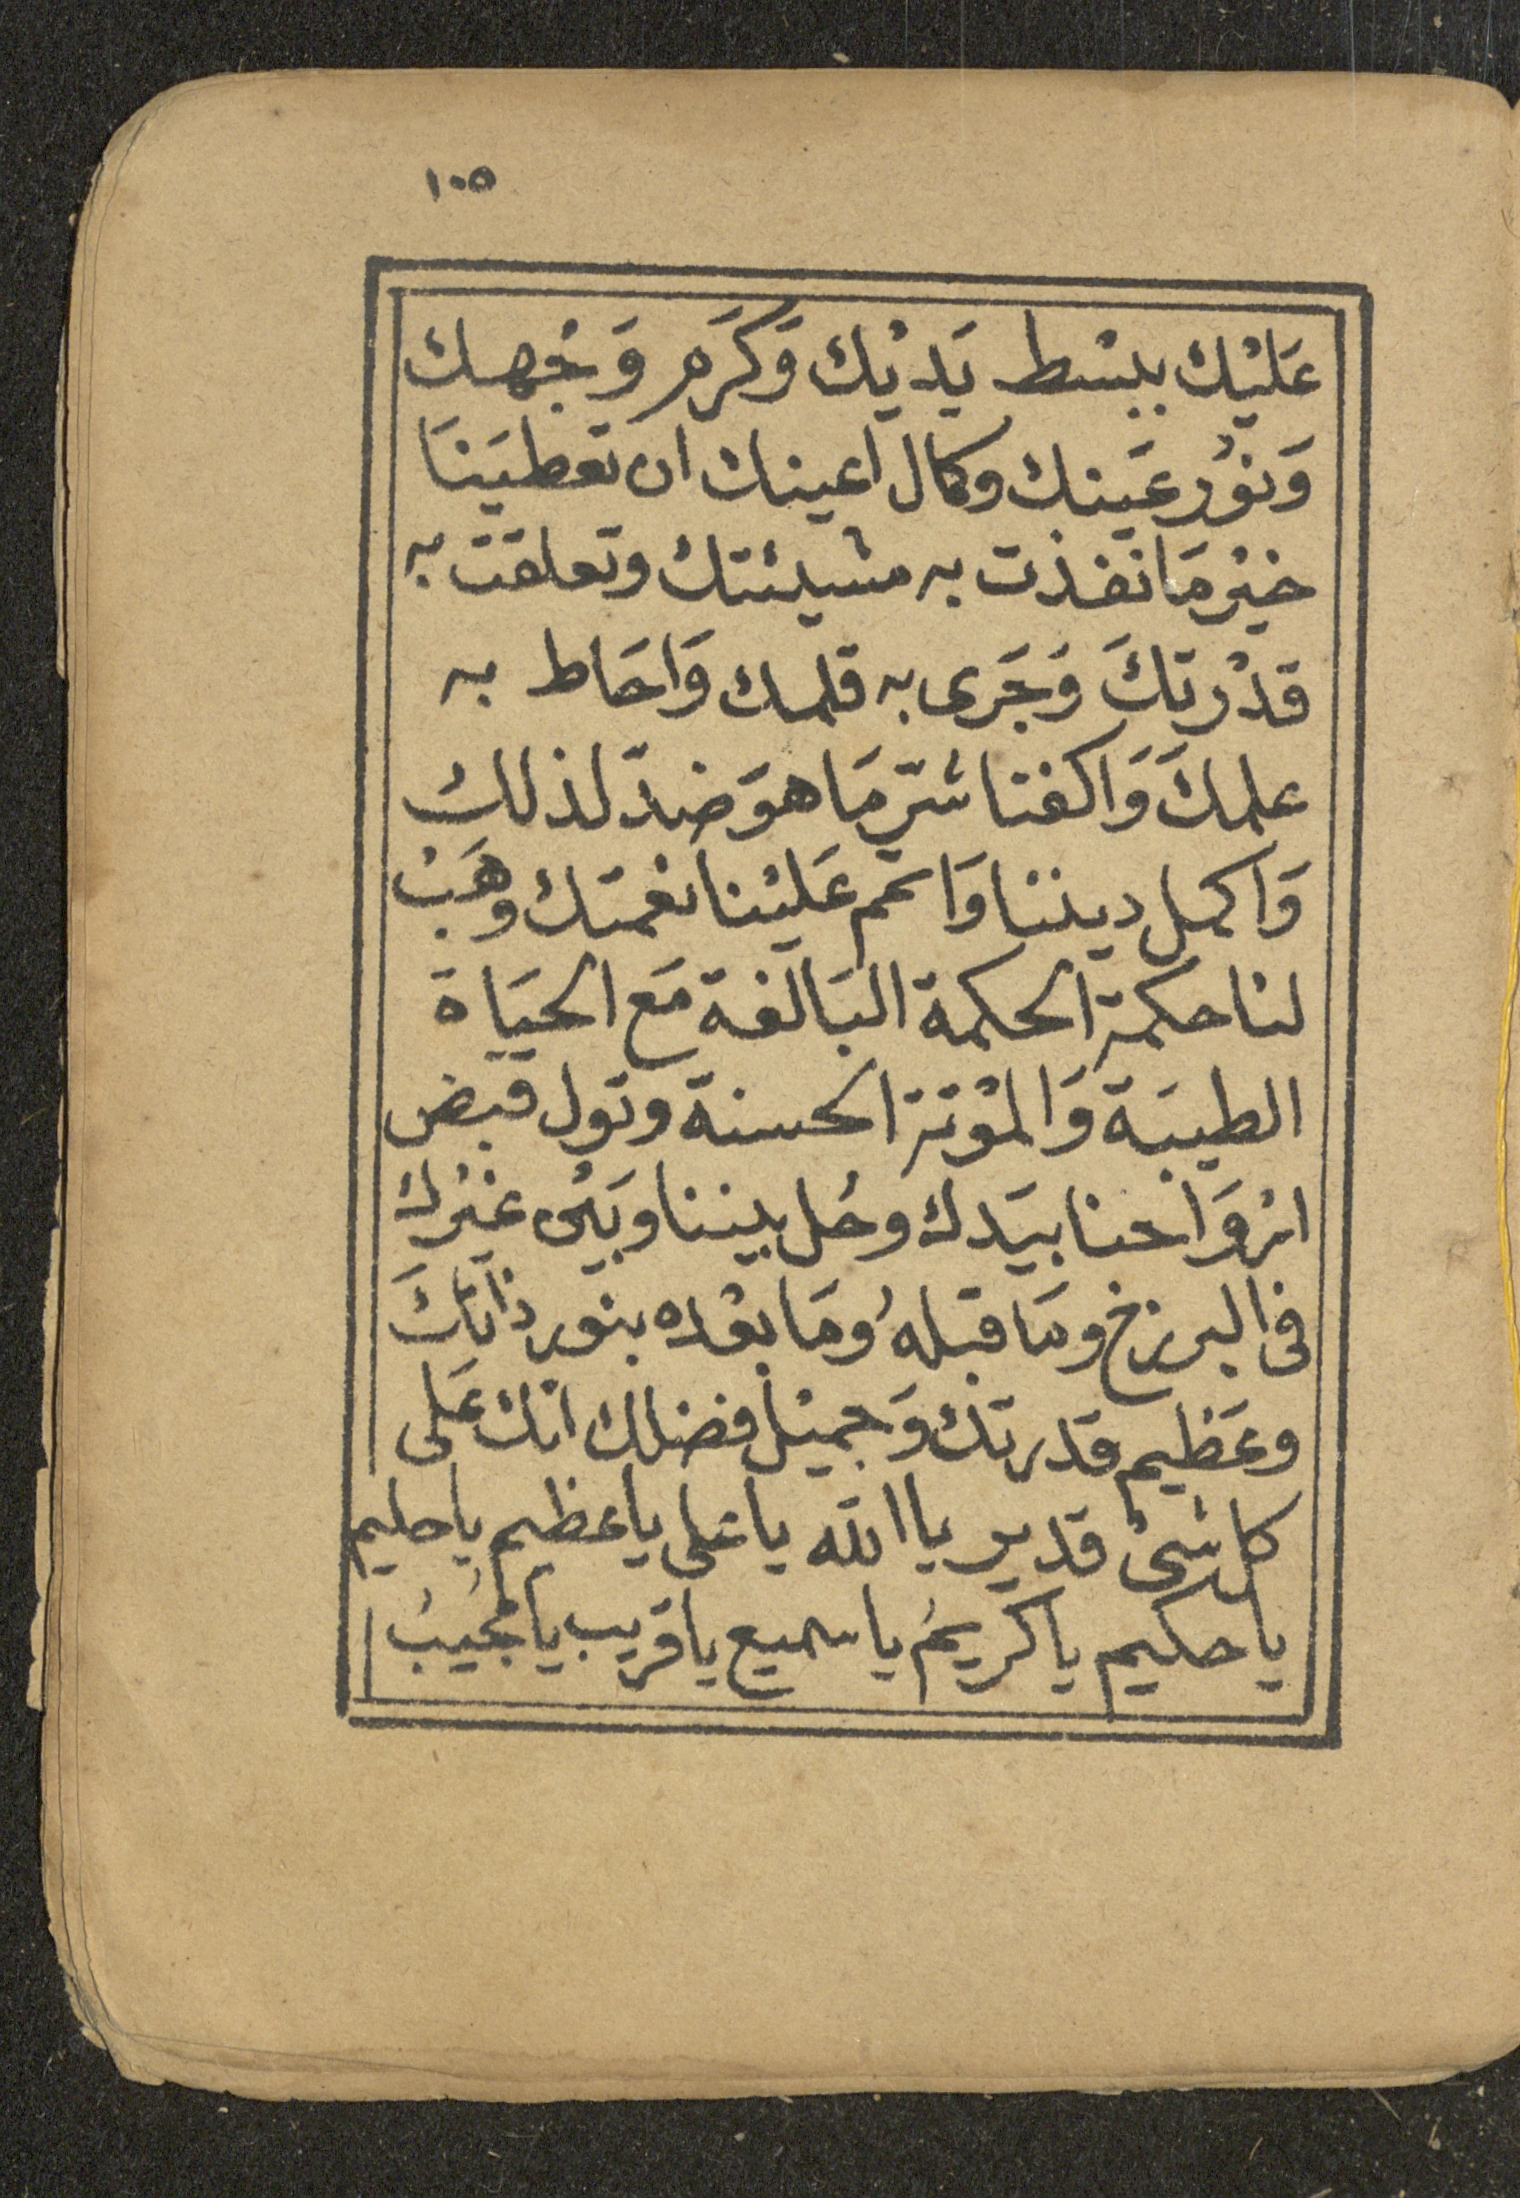 ١٠٥
عَلَيْك ببسْط يَديْك وَكَرَم وَجْهك
وَنوْر عَينك وكمال اعينك ان تعطيَنَا
خيْر مَا نفذت به مشيئتك وتعلقت به
قدْرتكَ وَجَرى به قلمك وَاحَاط به
علمكَ وَاكفنا شرّ مَا هوَ ضدّ لذلك
وَاكمل ديننا وَاتمم عَليْنا نعْمتك وهَبْ
لنا حكمة الحكمة البَالغة مَع الحيَاة
الطيبَة وَالموْتة الحسنة وتول قبض
ارْوَاحنا بيَدك وحُل بيننا وبَيْن غيْرك
فى البرزخ ومَا قبلهُ ومَا بعْده بنور ذاتكَ
وعَظيم قدرتك وَجميْل فضلك انك عَلى
كل شئ قدير يا الله يا على يا عظيم يا حليم
يا حكيم يا كريمُ يا سميع يا قريب يا مجُيبُ